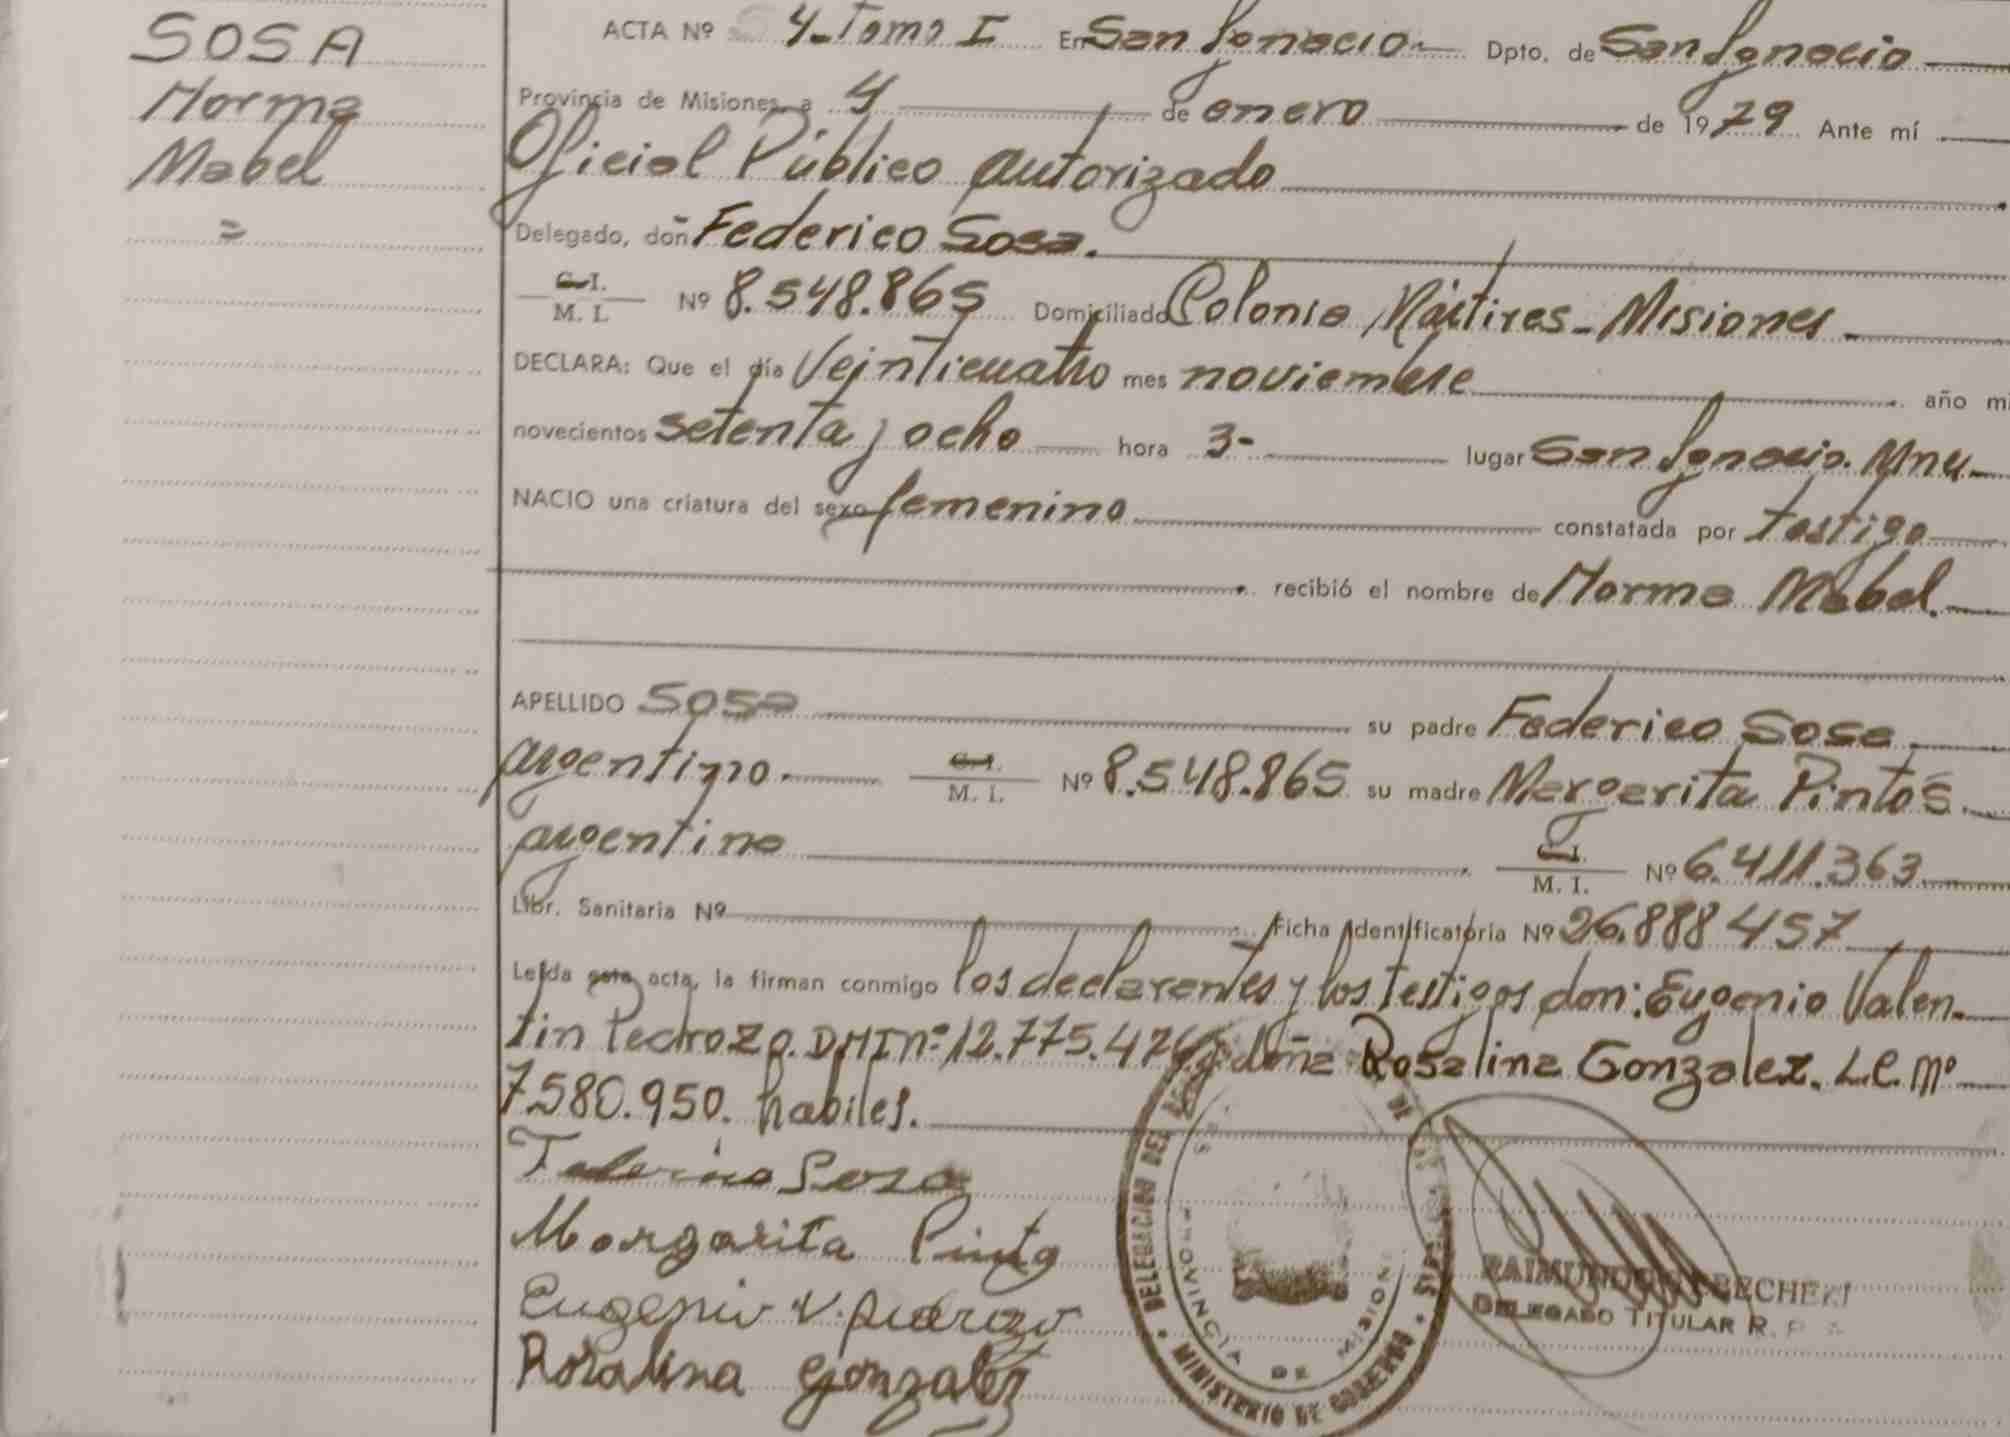 SOSA
Norma
Mabel
=
ACTA Nº 4-Tomo I En San Ignacio Dpto. de San Ignacio
Provincia de Misiones, a 4 de enero de 1979 Ante mí
Oficial Público Autorizado
Delegado, doñ Federico Sosa.
C. I.
M. I. Nº 8.548.865 Domiciliado Colonia Mártires - Misiones
DECLARA: Que el día Veinticuatro mes noviembre año mi
novecientos setenta y ocho hora 3- lugar San Ignacio. Mnes
NACIO una criatura del sexo femenino constatada por testigo
recibió el nombre de Norma Mabel.
APELLIDO Sosa su padre Federico Sosa
argentino. C. I. M. I. Nº 8.548.865 su madre Margarita Pintos
argentina C. I. M. I. Nº 6.411.363
Libr. Sanitaria Nº Ficha Identificatoria Nº 26.888 457
Leída esta acta, la firman conmigo los declarantes y los testigos don: Eugenio Valen-
tin Pedrozo. DNI nº 12.775.42 y doña Rosalina Gonzalez. L.C. nº
7.580.950. habiles.
Federico Sosa
Margarita Pinto
Eugenio V. Pedrozo
Rosalina Gonzalez
DELEGACION DEL DE
PROVINCIA DE MISIONES
MINISTERIO DE GOBIERNO
RAIMUNDO
DELEGADO TITULAR R. P.